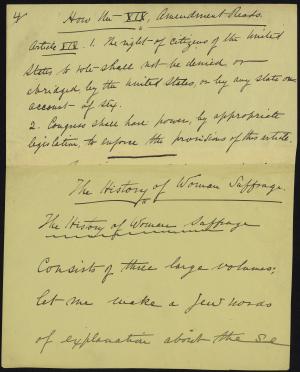 4
How the XIX, Amendment Reads.
Article XIX. 1. The right of citizens of the United
States to vote shall not be denied or
abridged by the United States, or by any state on
account of sex.
2. Congress shall have power, by appropriate
legislation, to enforce the provisions of this article.
The History of Woman Suffrage.
The History of Woman Suffrage
Consists of three large volumes;
let me make a few words
of explanation about the se